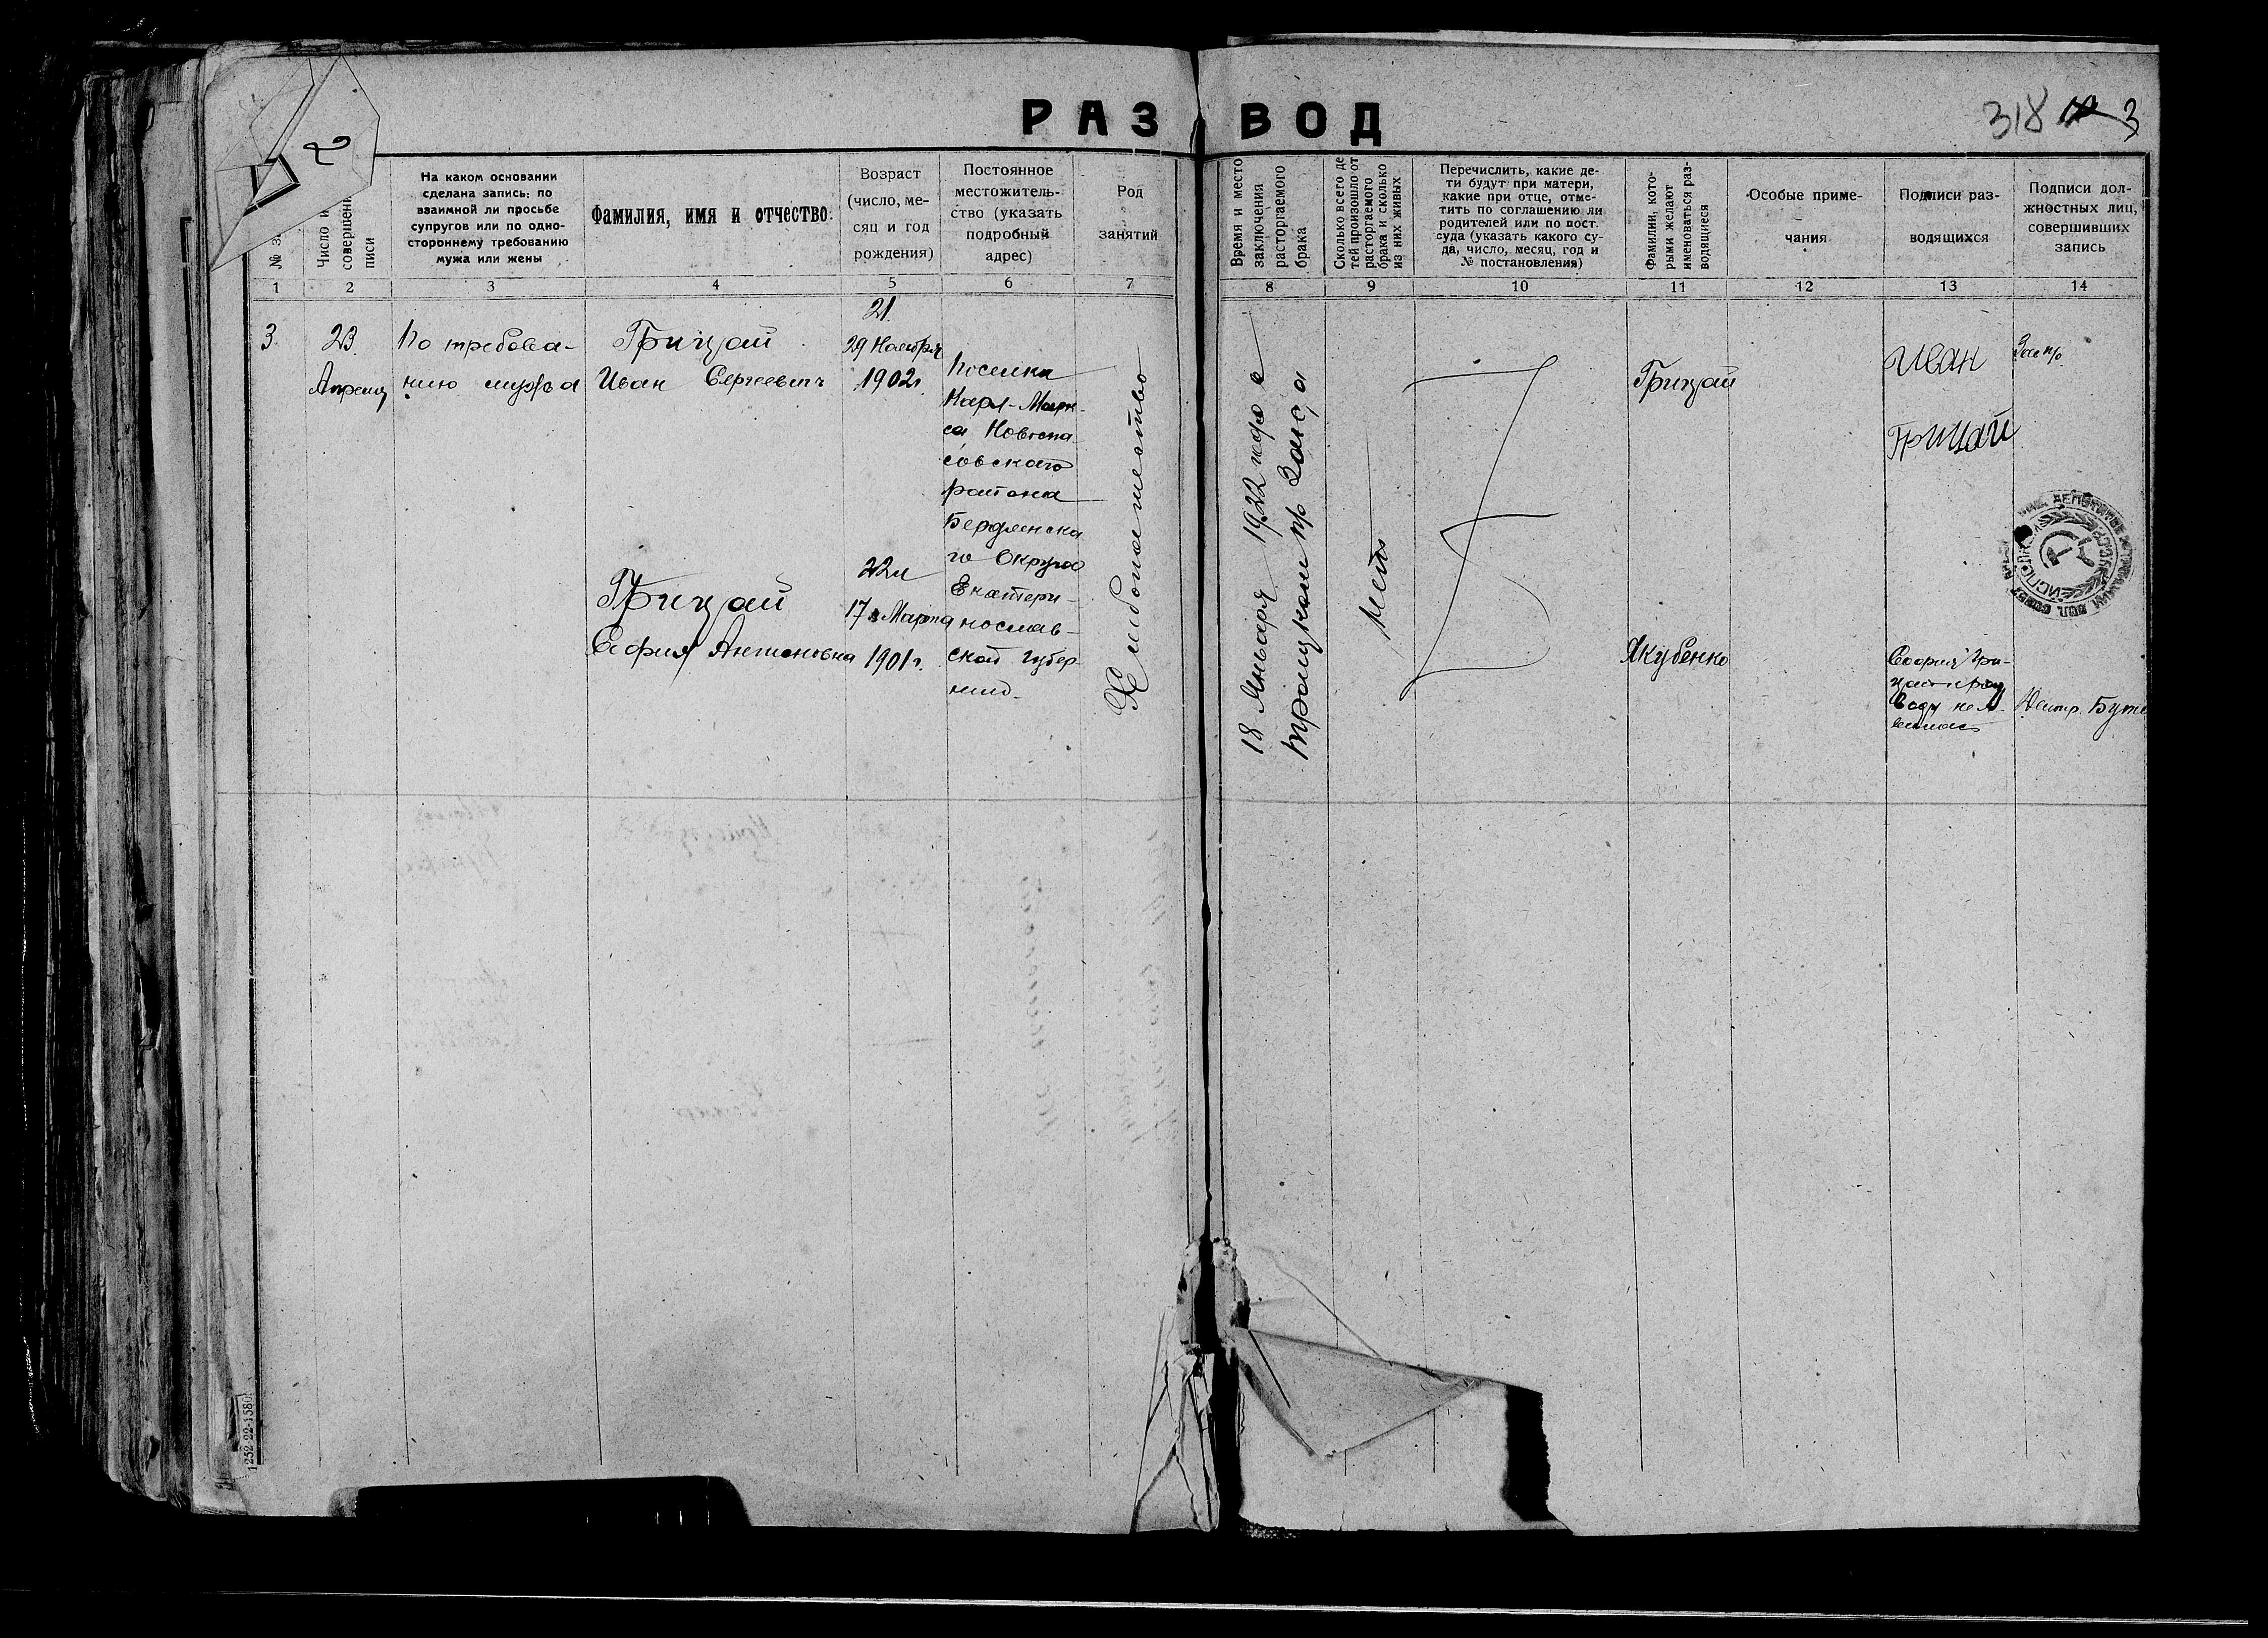 РАЗВОД
318
3
2
№ з
Число и
совершени
писи
На каком основании
сделана запись: по
взаимной ли просьбе
супругов или по одно-
стороннему требованию
мужа или жены
Фамилия, имя и отчество
Возраст
(число, ме-
сяц и год
рождения)
Постоянное
местожитель-
ство (указать
подробный
адрес)
Род
занятий
Время и место
заключения
расторгаемого
брака
Сколько всего де
тей произошло от
расторгаемого
брака и сколько
из них живых
Перечислить, какие де-
ти будут при матери,
какие при отце, отме-
тить по соглашению ли
родителей или по пост.
суда (указать какого су-
да, число, месяц, год и
№ постановления)
Фамилии, кото-
рыми желают
именоваться раз-
водящиеся
Особые приме-
чания
Подписи раз-
водящихся
Подписи дол-
жностных лиц,
совершивших
запись
1 2 3 4 5 6 7 8 9 10 11 12 13 14
3.
23
Апреля
По требова-
нию мужа
Грицай
Иван Сергеевич
21.
29 Ноября
1902г
Грицай
София Антоновна
22л
17 Марта
1901г.
Поселка
Карл-Марк-
са Новоспа-
совского
района
Бердянска
го Округа
Екатери-
нослав-
ской губер-
нии
Хлебопашество
18 Января 1922 года в
Троицком п/о Загса
Нет
Грицай
Якубенко
Иван
Грицай
София Гри-
Зав п/о
1252 22-158